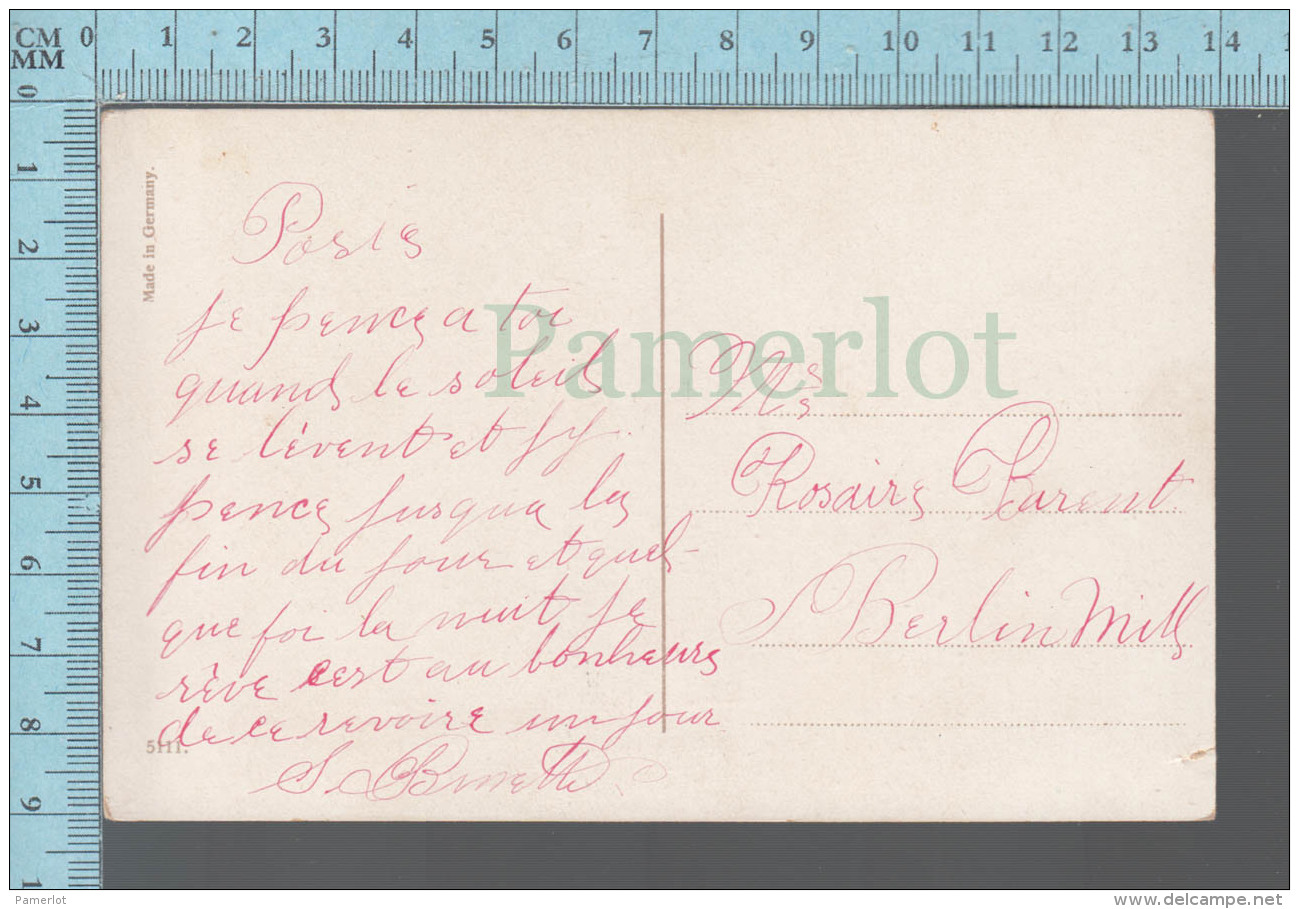 CM 0 1 2 3 4 5 6 7 8 9 10 11 12 13 14
MM
0 1 2 3 4 5 6 7 8 9
Made in Germany.
je pence a toi
quand le soleil
se lèvent et j y
pence jusqua la
fin du jour et quel-
que foi la nuit je
rêve cest au bonheurs
de ce revoire un jour
5111.
Pamerlot
Rosaire Parent
Berlin Mills
Pamerlot
www.delcampe.net